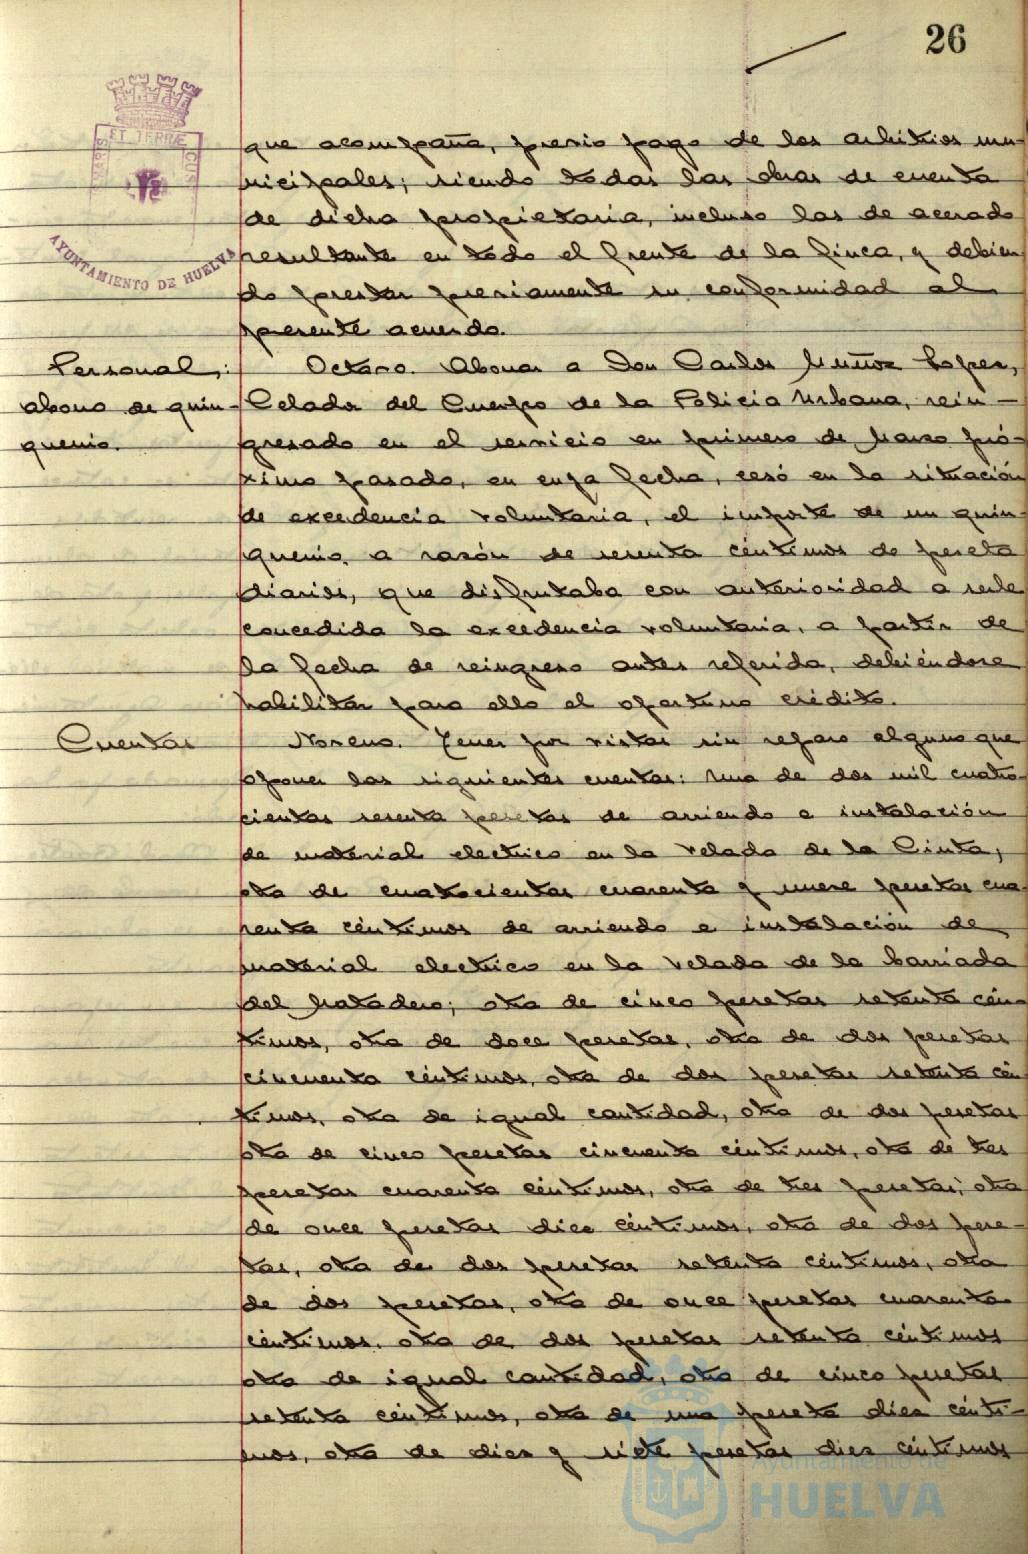 26
que acompaña, previo pago de los arbitrios mu-
nicipales; siendo todas las obras de cuenta
de dicha propietaria, incluso las de acerado
resultante en todo el frente de la finca, y debien
do prestar previamente su conformidad al
presente acuerdo.
Personal,:
abono de quin-
quenio.
Octavo. Abonar a Don Carlos Muñoz Lopez,
Celador del Cuerpo de la Policia Urbana, rein-
gresado en el servicio en primero de Marzo pró-
ximo pasado, en cuya fecha, cesó en la situación
de excedencia voluntaria, el importe de un quin-
quenio, a razón de sesenta céntimos de peseta
diarios, que disfrutaba con anterioridad a serle
concedida la excedencia voluntaria, a partir de
la fecha de reingreso antes referida, debiéndose
habilitar para ello el oportuno crédito.
Cuentas
Noveno. Tener por vistas sin reparo alguno que
oponer las siguientes cuentas: Una de dos mil cuatro-
cientas sesenta pesetas de arriendo e instalación
de material electrico en la Velada de la Cinta;
otra de cuatrocientas cuarenta y nueve pesetas cua-
renta céntimos de arriendo e instalación de
material electrico en la Velada de la barriada
del Matadero; otra de cinco pesetas setenta cén-
timos, otra de doce pesetas, otra de dos pesetas
cincuenta céntimos, otra de dos pesetas setenta cén
timos, otra de igual cantidad, otra de dos pesetas
otra de cinco pesetas cincuenta céntimos, otra de tres
pesetas cuarenta céntimos, otra de tres pesetas; otra
de once pesetas diez céntimos, otra de dos pese-
tas, otra de dos pesetas setenta céntimos, otra
de dos pesetas, otra de once pesetas cuarenta
céntimos, otra de dos pesetas setenta céntimos
otra de igual cantidad, otra de cinco pesetas
setenta céntimos, otra de una peseta diez cénti-
mos, otra de diez y siete pesetas diez céntimos
ET TERRÆ CUS
MARIS
AYUNTAMIENTO DE HUELVA
Ayuntamiento de
HUELVA